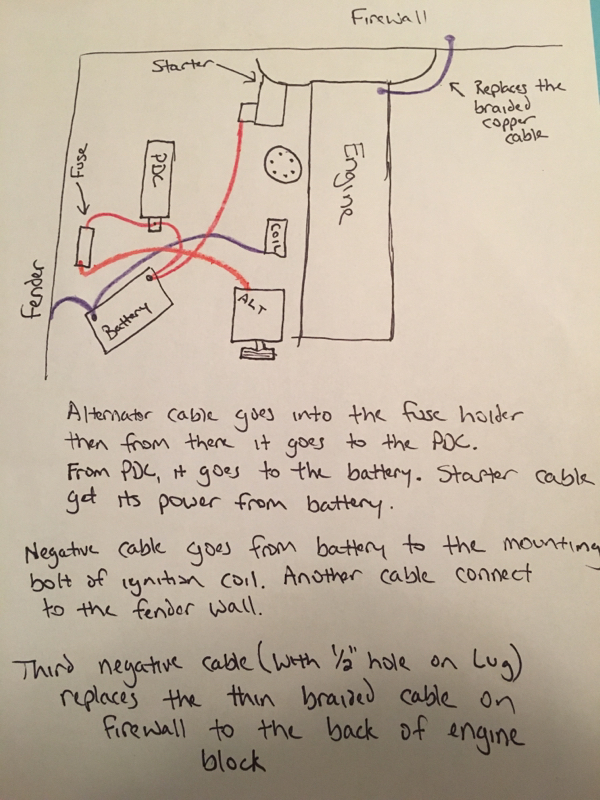 Firewall
Starter
Replaces the
braided
copper
cable
Fuse
PDC
Engine
COIL
Fender
Battery
ALT
Alternator cable goes into the fuse holder
then from there it goes to the PDC.
From PDC, it goes to the battery. Starter cable
get its power from battery.
Negative cable goes from battery to the mounting
bolt of ignition coil. Another cable connect
to the fender wall.
Third negative cable (with 1/2" hole on Lug)
replaces the thin braided cable on
firewall to the back of engine
block